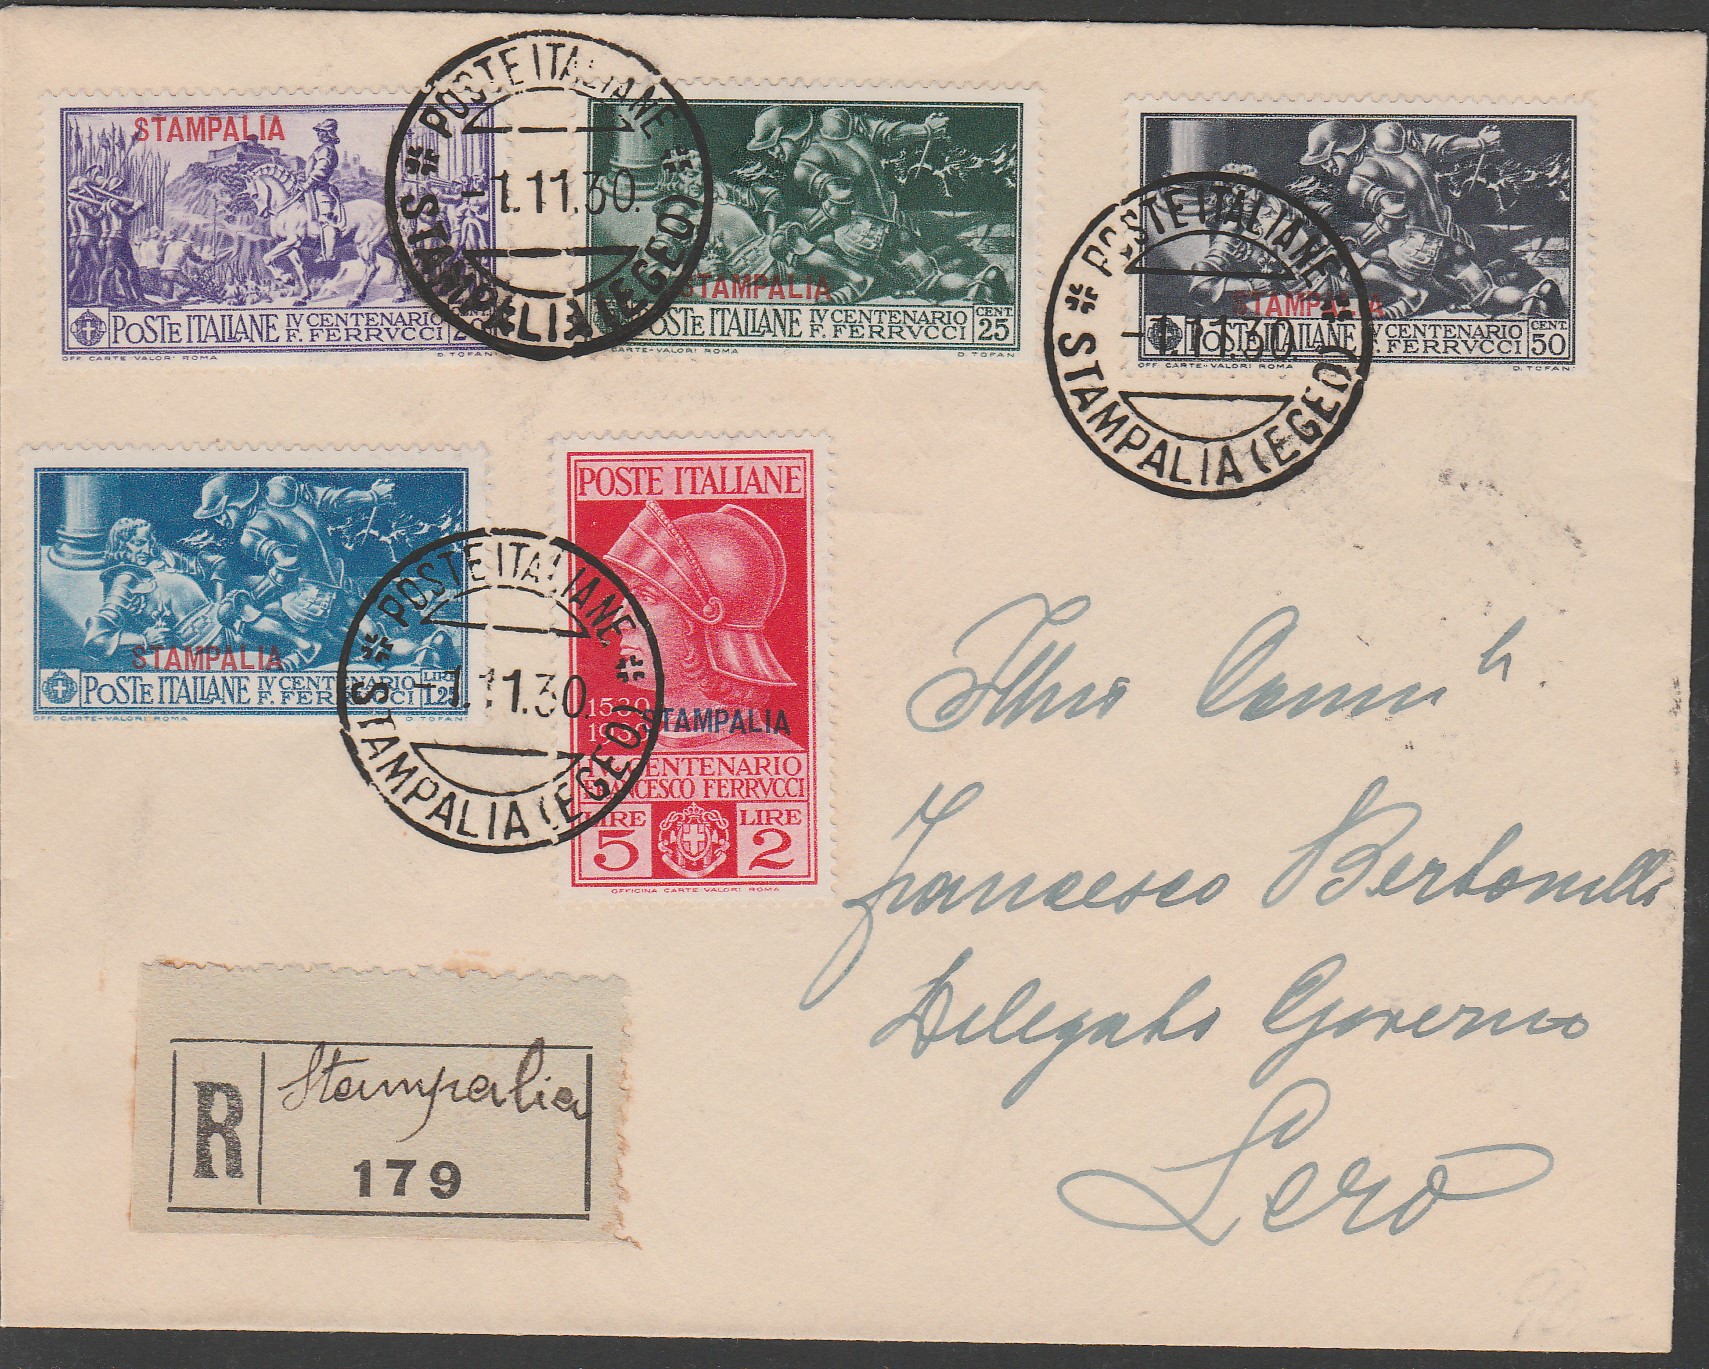 STAMPALIA
POSTE ITALIANE IV CENTENARIO
F. FERRVCCI
OFF. CARTE-VALORI ROMA D. TOFANI
POSTE ITALIANE
-1.11.30.
STAMPALIA (EGEO)
STAMPALIA
POSTE ITALIANE IV CENTENARIO CENT.
F. FERRVCCI 25
CARTE-VALORI ROMA D. TOFANI
STAMPALIA
POSTE ITALIANE IV CENTENARIO CENT.
F. FERRVCCI 50
OFF. CARTE-VALORI ROMA D. TOFANI
POSTE ITALIANE
-1.11.30.
STAMPALIA (EGEO)
STAMPALIA
POSTE ITALIANE IV CENTENARIO LIRE
F. FERRVCCI 1.25
OFF. CARTE-VALORI ROMA D. TOFANI
POSTE ITALIANE
-1.11.30.
STAMPALIA (EGEO)
POSTE ITALIANE
1530
1930
STAMPALIA
IV CENTENARIO
FRANCESCO FERRVCCI
LIRE LIRE
5 2
OFFICINA CARTE VALORI ROMA
Francesco Bertonelli
Delegato Governo
Lero
R Stampalia
179